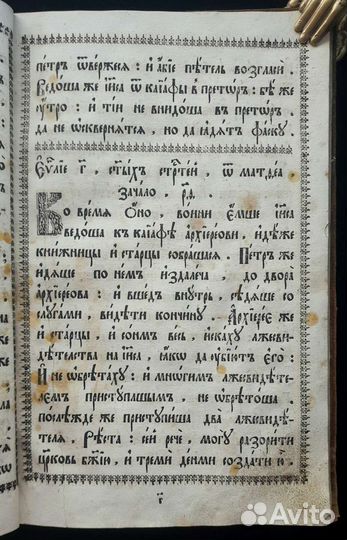 пе́тръ ѿве́ржеся : и҆ а҆́бїе пѣ́тель возгласѝ .
Ведо́ша же і҆и҃са ѿ каїа́фы в прето́ръ : бѣ́ же
ѹ҆́тро : и҆ ті́и не внидо́ша въ прето́ръ ,
да не ѡ҆сквернѧ́тся , но да ꙗ҆дѧ́тъ фа́ску .
Еѵⷢ҇лїе г҃ , ст҃ы́хъ стрⷭ҇те́й , ѿ матѳе́а
зача́ло ,
Во вре́мя ѻ҆́но , во́ини е҆́мше і҆и҃са
ведо́ша къ каїа́фѣ а҆рхїере́ови , и҆дѣ́же
кни́жницы и҆ ста́рцы собра́шася . Пе́тръ же
и҆дѧ́ше по не́мъ и҆здале́ча , до двора̀
а҆рхїере́ова : и҆ вше́дъ внꙋ́трь , сѣдѧ́ше со
слꙋга́ми , ви́дѣти кончи́нꙋ . А҆рхїере́е же
и҆ ста́рцы , и҆ со́нмъ ве́сь , и҆ска́хꙋ лжеви-
дѣ́тельства на і҆и҃са , ꙗ҆́кѡ да ᲂу҆бїю́тъ є҆го̀ :
И҆ не ѡ҆брѣта́хꙋ : и҆ мнѡ́гимъ лжевидѣ́те-
лемъ пристꙋ́пльшымъ , не ѡ҆брѣто́ша .
послѣжде́ же пристꙋпи́ша два̀ лжевидѣ́-
теля , Рѣ́ста : се́й речѐ , могꙋ̀ разори́ти
цр҃ковь бж҃їю , и҆ треми́ де́нми созда́ти ю҆̀ .
Avito